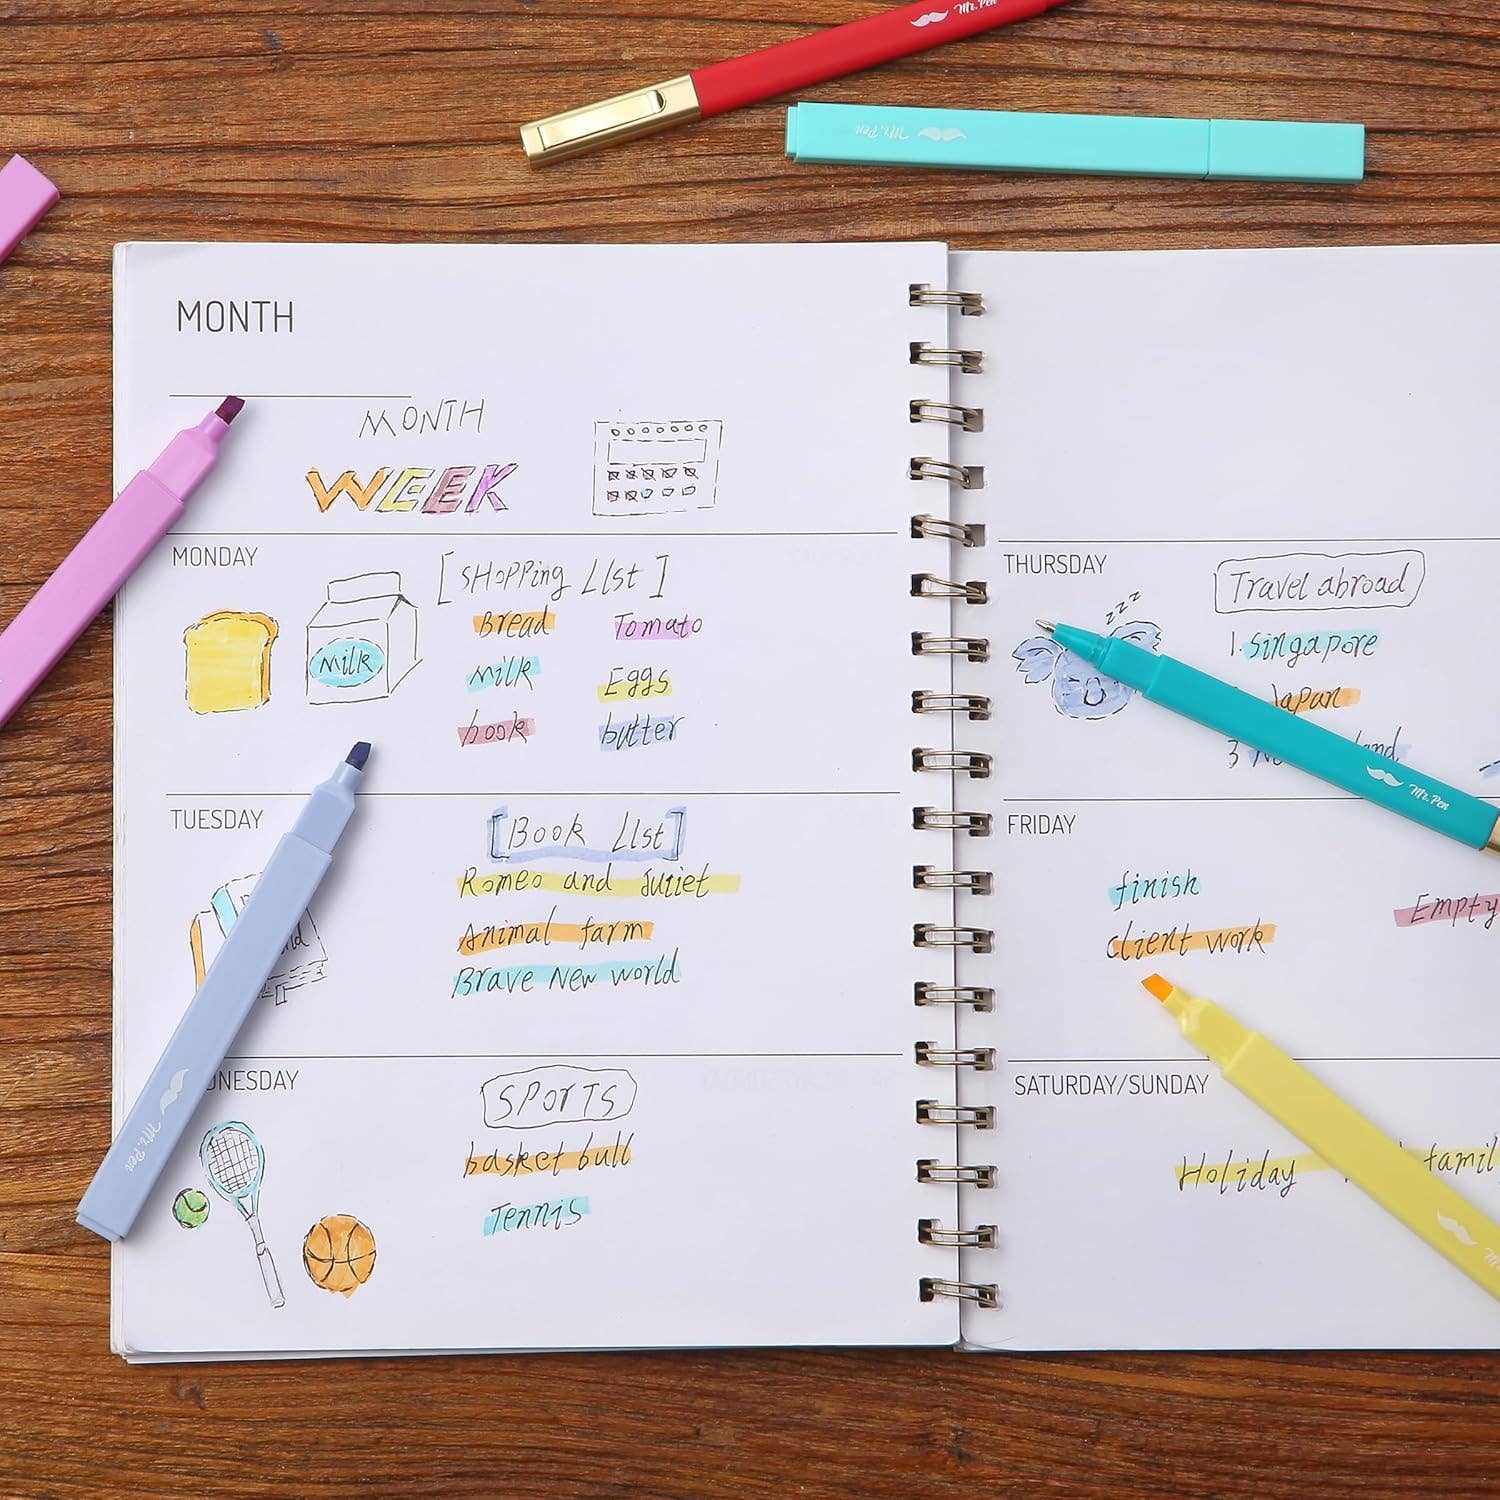 Mr. Pen
Mr. Pen
MONTH
MONTH
WEEK
MONDAY
[SHopping LIst]
Bread
Tomato
Milk
milk
Eggs
book
butter
TUESDAY
[Book LIst]
Romeo and Juriet
Animal farm
Brave New world
SPorTS
basket bull
Tennis
Mr. Pen
THURSDAY
zzz
Travel abroad
1. singapore
Japan
3
Mr. Pen
FRIDAY
finish
Empty
client work
SATURDAY/SUNDAY
Holiday